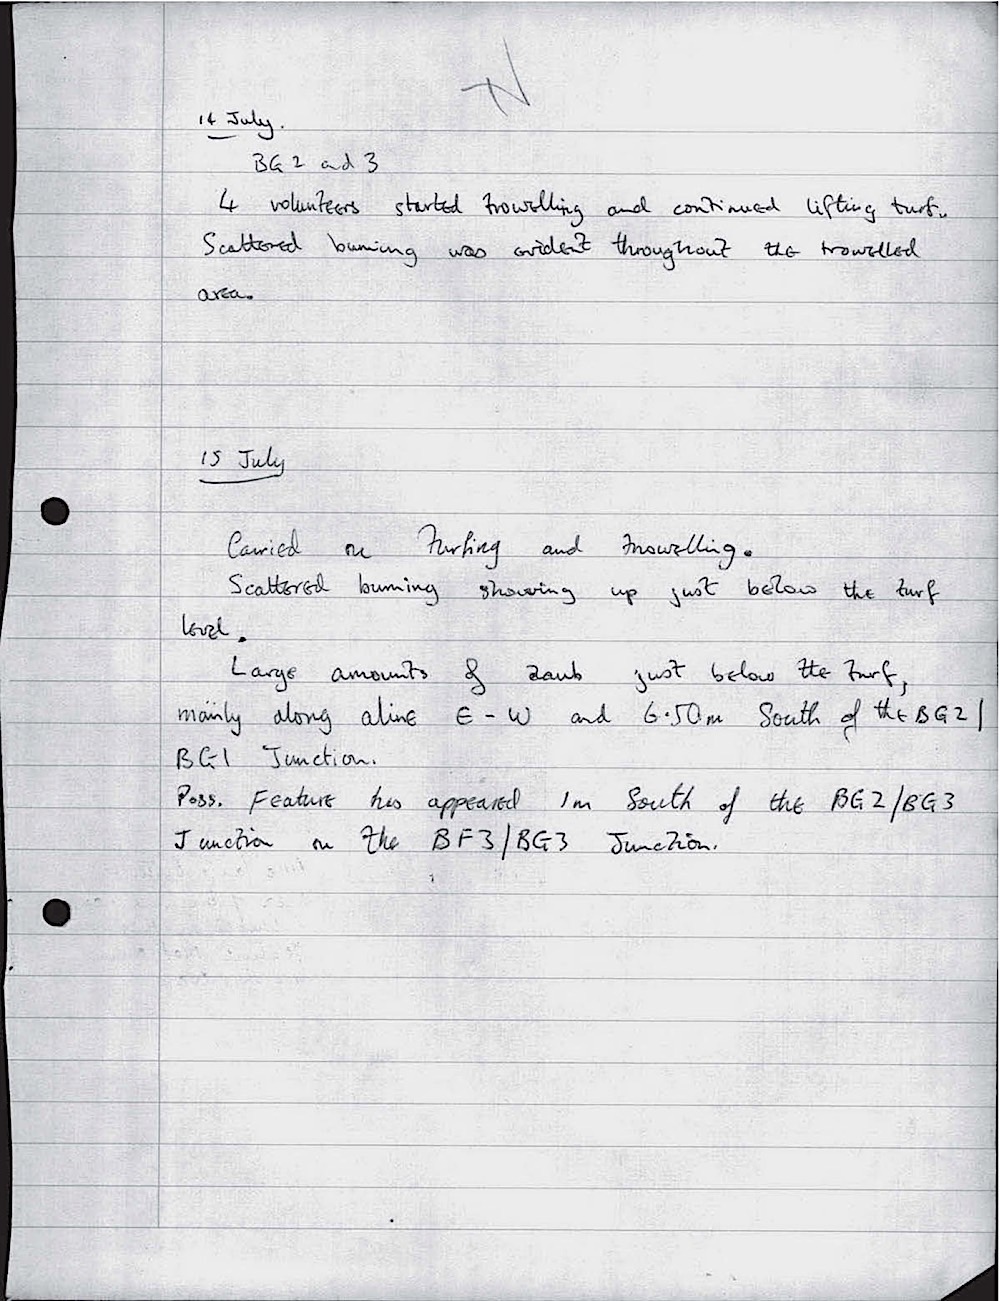 14 July.
BG 2 and 3
4 volunteers started trowelling and continued lifting turf.
Scattered burning was evident throughout the trowelled
area.
15 July
Carried on turfing and trowelling.
Scattered burning showing up just below the turf
level.
Large amounts of daub just below the turf,
mainly along a line E - W and 6.50m South of the BG2/
BG1 Junction.
Poss. Feature has appeared 1m South of the BG2/BG3
Junction on the BF3/BG3 Junction.